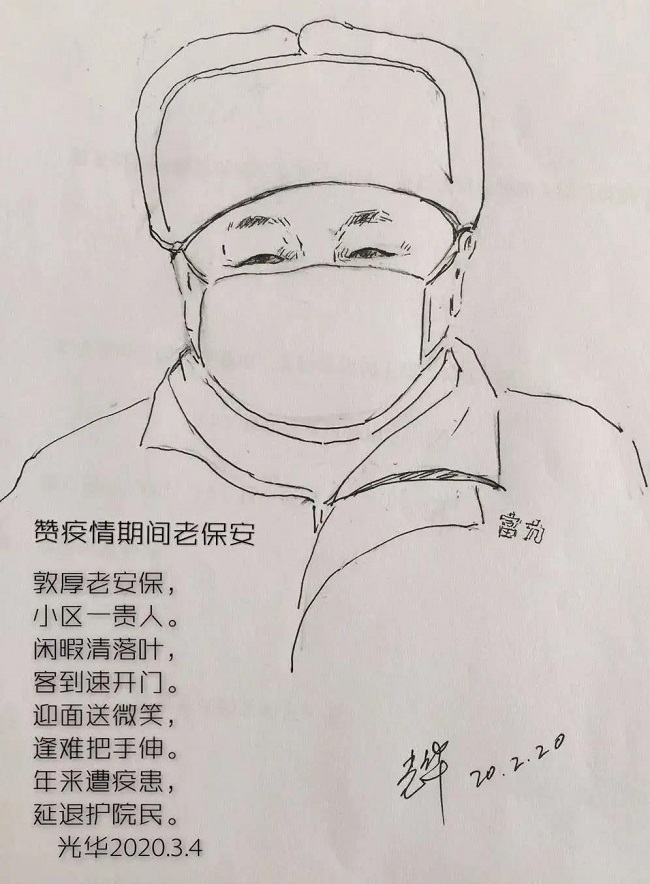 赞疫情期间老保安
敦厚老安保，
小区一贵人。
闲暇清落叶，
客到速开门。
迎面送微笑，
逢难把手伸。
年来遭疫患，
延退护院民。
光华2020.3.4
富为
光华 20.2.20